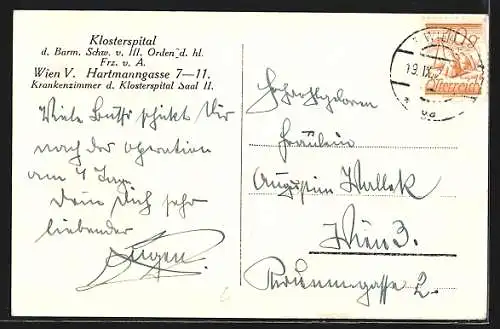 Klosterspital
d. Barm. Schw. v. III. Orden d. hl.
Frz. v. A.
Wien V. Hartmanngasse 7—11.
Krankenzimmer d. Klosterspital Saal II.
Viele schickt Dir
nach der operation
am 4 Tage
Dein Dich sehr
liebender
Eugen
Fräulein
Augustin Wallek
Wien 3.
2.
19. IX.
Österreich